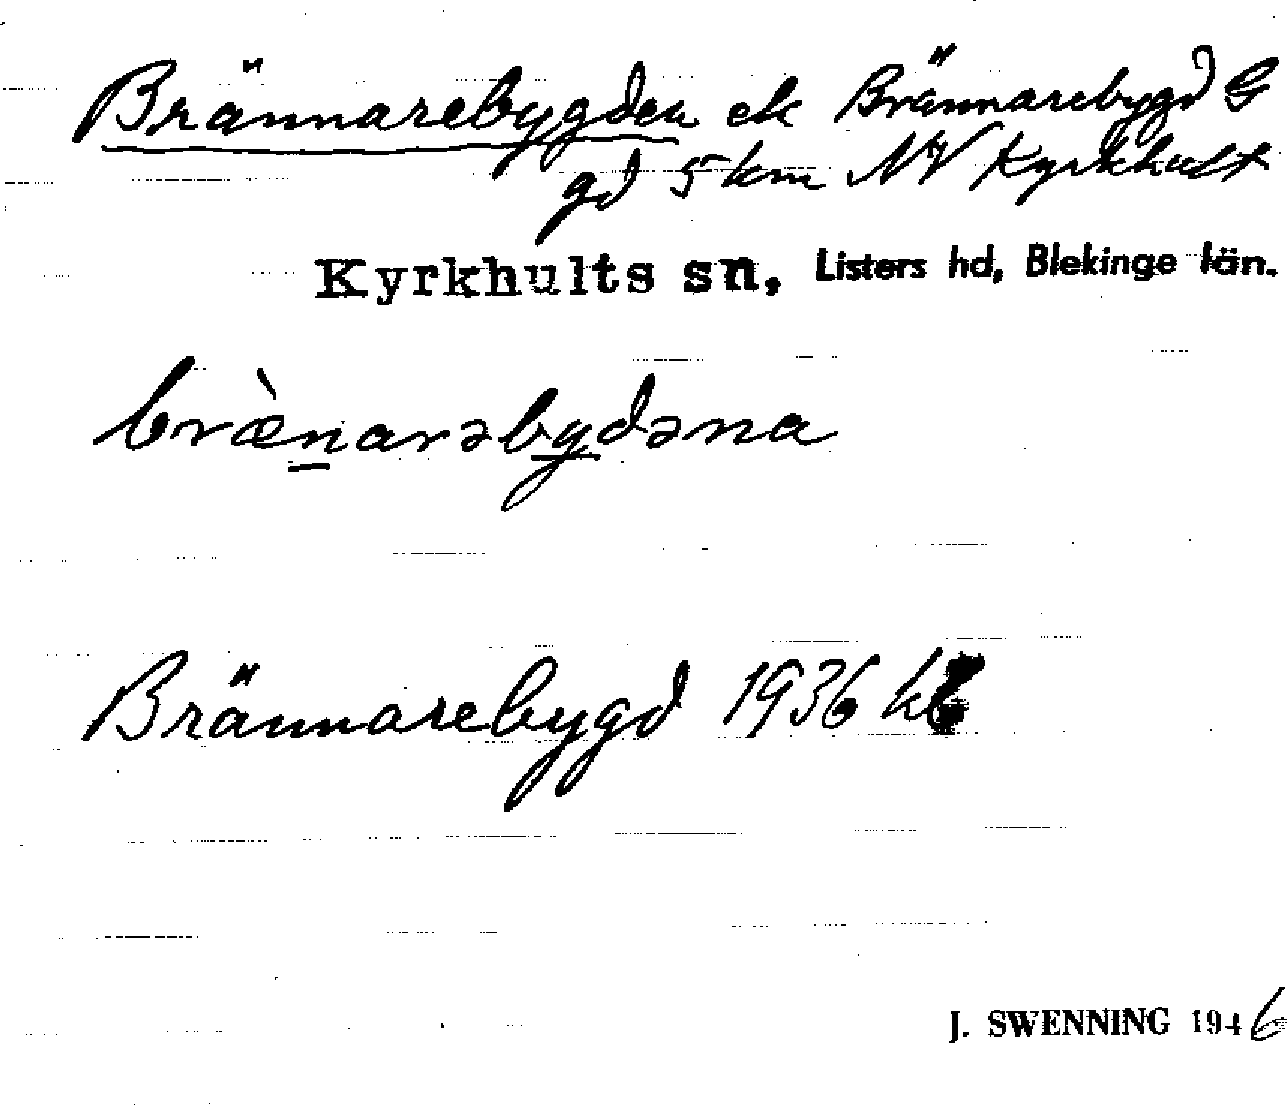 Brännarebygden ek Brännarebygd G
gd 5 km NV Kyrkhult
Kyrkhults sn, Listers hd, Blekinge län.
bræ̀narəbydəna
Brännarebygd 1936
J. SWENNING 1946